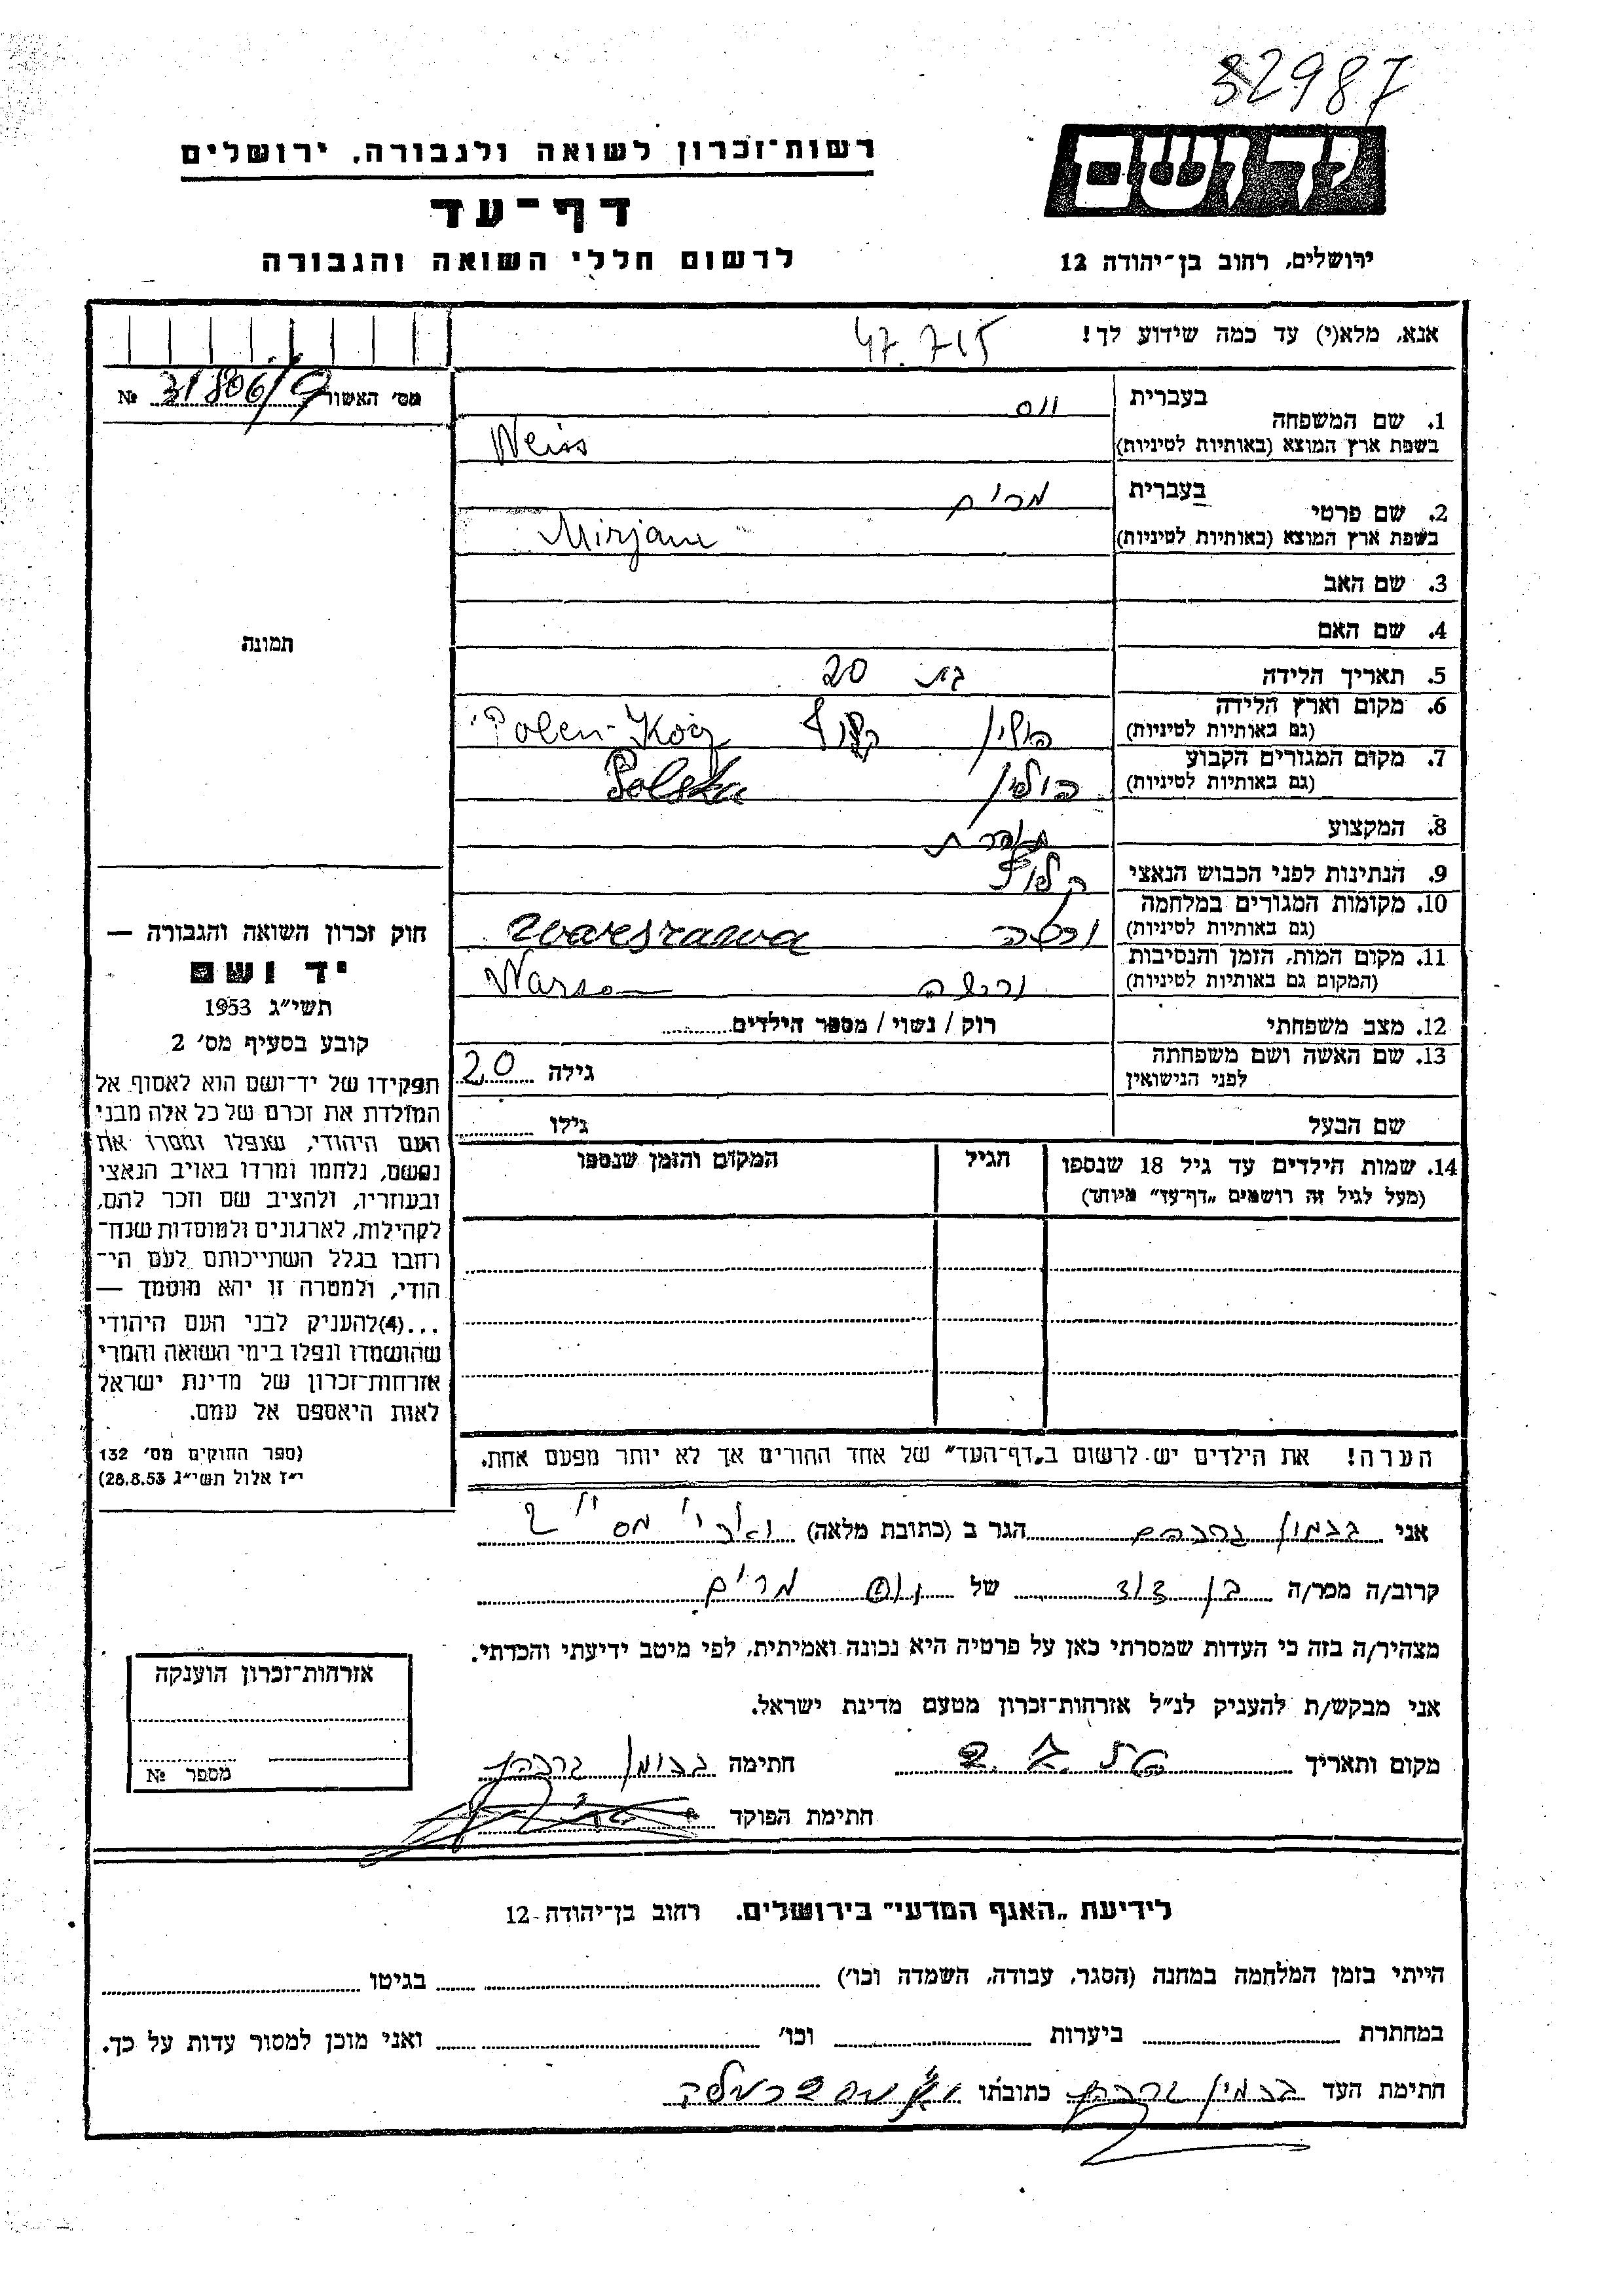 32987
רשות־זכרון לשואה ולגבורה, ירושלים
יד ושם
דף־עד
לרשום חללי השואה והגבורה
ירושלים, רחוב בן־יהודה 12
אנא, מלא(י) עד כמה שידוע לך!
47.715
מס׳ האשור 31806/9 №
1. שם המשפחה
בעברית ווס
בשפת ארץ המוצא (באותיות לטיניות) Weiss
2. שם פרטי
בעברית מרים
בשפת ארץ המוצא (באותיות לטיניות) Mirjam
3. שם האב
4. שם האם
תמונה
5. תאריך הלידה בת 20
6. מקום וארץ הלידה
(גם באותיות לטיניות) פולין Polen-
7. מקום המגורים הקבוע
(גם באותיות לטיניות) פולין Polska
8. המקצוע
9. הנתינות לפני הכבוש הנאצי
10. מקומות המגורים במלחמה
(גם באותיות לטיניות) ורשה
11. מקום המות, הזמן והנסיבות
(המקום גם באותיות לטיניות) ורשה
12. מצב משפחתי רוק / נשוי / מספר הילדים
13. שם האשה ושם משפחתה
לפני הנישואין גילה 20
שם הבעל גילו
14. שמות הילדים עד גיל 18 שנספו הגיל המקום והזמן שנספו
(מעל לגיל זה רושמים „דף־עד״ מיוחד)
הערה! את הילדים יש לרשום ב„דף־העד״ של אחד ההורים אך לא יותר מפעם אחת.
חוק זכרון השואה והגבורה —
יד ושם
תשי״ג 1953
קובע בסעיף מס׳ 2
תפקידו של יד־ושם הוא לאסוף אל
המולדת את זכרם של כל אלה מבני
העם היהודי, שנפלו ומסרו את
נפשם, נלחמו ומרדו באויב הנאצי
ובעוזריו, ולהציב שם וזכר להם,
לקהילות, לארגונים ולמוסדות שנח־
רבו בגלל השתייכותם לעם הי־
הודי, ולמטרה זו יהא מוסמך —
...(4)להעניק לבני העם היהודי
שהושמדו ונפלו בימי השואה והמרי
אזרחות־זכרון של מדינת ישראל
לאות היאספם אל עמם.
(ספר החוקים מס׳ 132
י״ז אלול תשי״ג 28.8.53)
אני הגר ב (כתובת מלאה)
קרוב/ה מכר/ה בן דוד של ווס מרים
מצהיר/ה בזה כי העדות שמסרתי כאן על פרטיה היא נכונה ואמיתית, לפי מיטב ידיעתי והכרתי.
אני מבקש/ת להעניק לנ״ל אזרחות־זכרון מטעם מדינת ישראל.
מקום ותאריך חתימה
חתימת הפוקד
אזרחות־זכרון הוענקה
מספר №
לידיעת „האגף המדעי״ בירושלים. רחוב בן־יהודה 12
הייתי בזמן המלחמה במחנה (הסגר, עבודה, השמדה וכו׳) בגיטו
במחתרת ביערות וכו׳ ואני מוכן למסור עדות על כך.
חתימת העד כתובתו